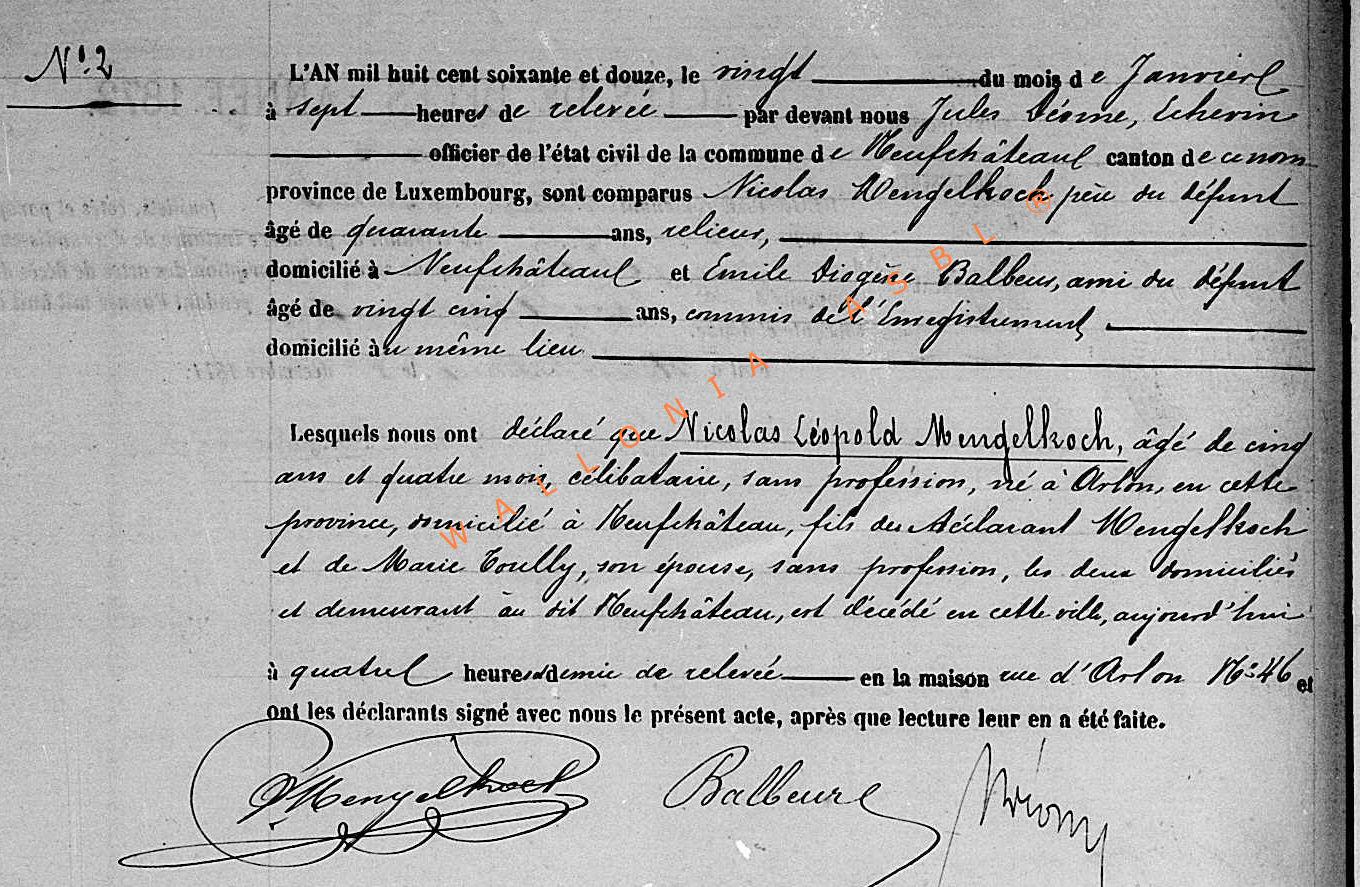 N° 2
L'AN mil huit cent soixante et douze, le vingt du mois de Janvier
à sept heures de relevée par devant nous Jules Echevin
officier de l'état civil de la commune de Neufchâteau canton de ce nom
province de Luxembourg, sont comparus Nicolas Mengelkoch père du défunt
âgé de quarante ans, relieur,
domicilié à Neufchâteau et Emile Diogène Balbeur, ami du défunt
âgé de vingt cinq ans, commis de l'Enregistrement
domicilié au même lieu
Lesquels nous ont déclaré que Nicolas Léopold Mengelkoch, âgé de cinq
ans et quatre mois, célibataire, sans profession, né à Arlon, en cette
province, domicilié à Neufchâteau, fils du déclarant Mengelkoch
et de Marie Toully, son épouse, sans profession, les deux domiciliés
et demeurant au dit Neufchâteau, est décédé en cette ville, aujourd'hui
à quatre heures demie de relevée en la maison rue d'Arlon N° 46 et
ont les déclarants signé avec nous le présent acte, après que lecture leur en a été faite.
Mengelkoch Balbeur
WALLONIA ASBL ®